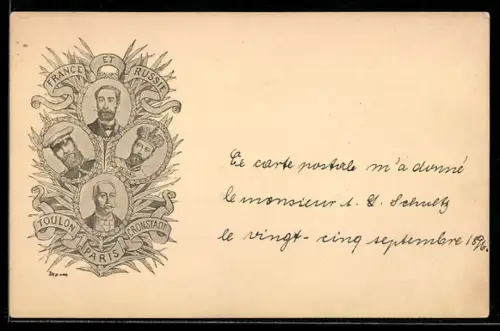 FRANCE ET RUSSIE
TOULON PARIS CRONSTADT
Ce carte postale m'a donné
le monsieur A. U. Schultz
le vingt-cinq septembre 1896.